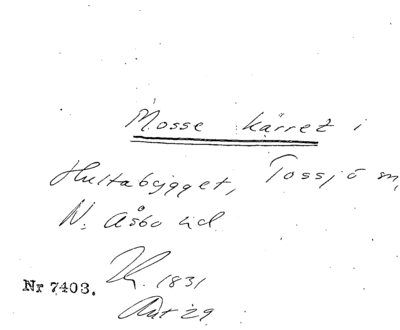 Mosse kärret i
Hultabygget, Tossjö sn,
N. Åsbo hd
1831
Nr 7403.
Akt 29